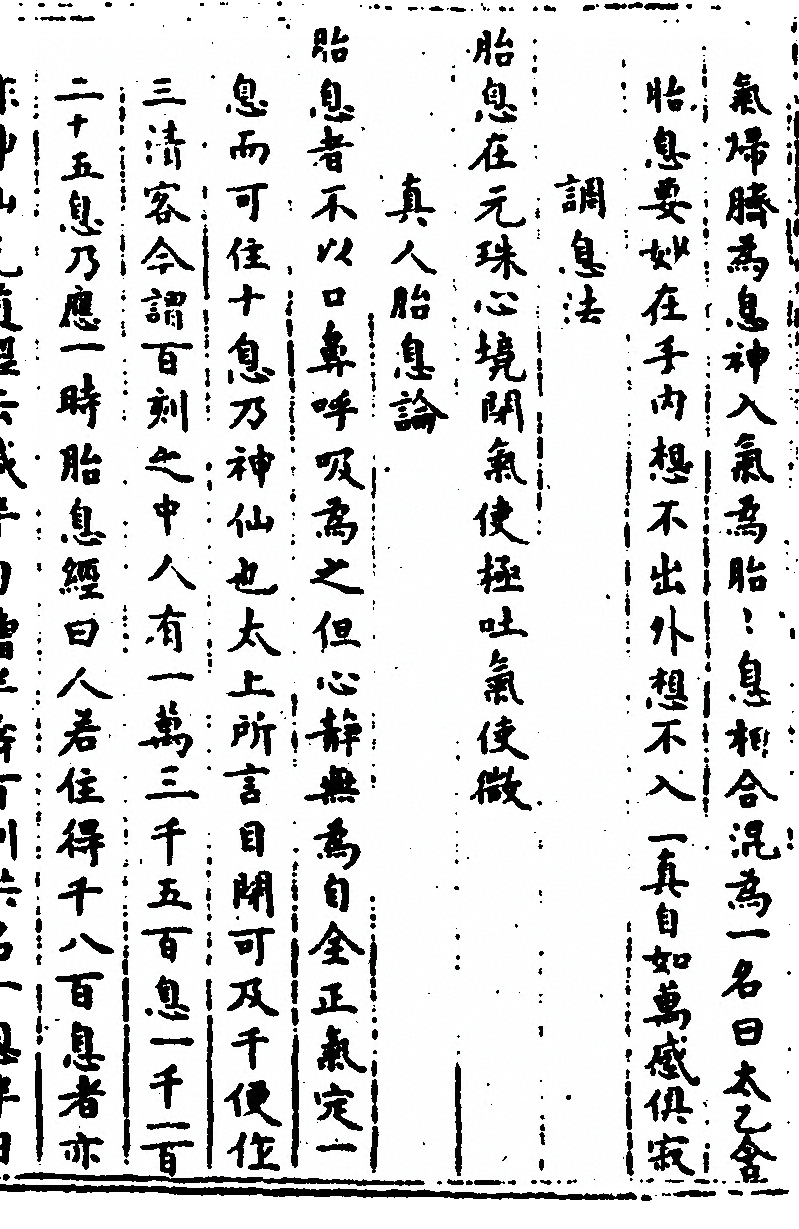 氣歸臍為息神入氣為胎〻息相合混為一名曰太乙含
胎息要妙在乎內想不出外想不入一真自如萬感俱寂
調息法
胎息在元珠心境閉氣使極吐氣使微
真人胎息論
胎息者不以口鼻呼吸為之但心靜無為自全正氣定一
息而可住十息乃神仙也太上所言目閉可及千便作
三清客今謂百刻之中人有一萬三千五百息一千一百
二十五息乃應一時胎息經曰人若住得千八百息者亦